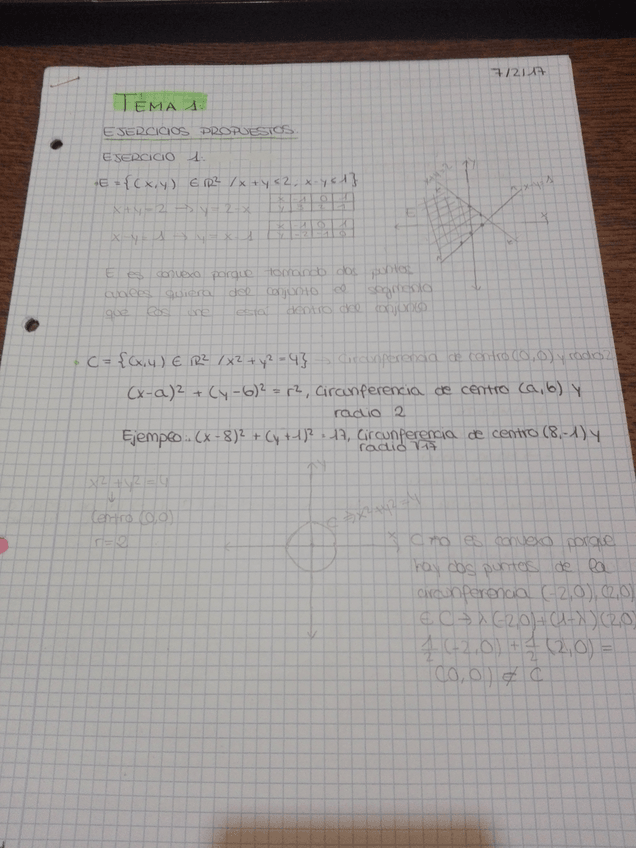 7/2/17
TEMA 1.
EJERCICIOS PROPUESTOS.
EJERCICIO 1.
E = {(x,y) ∈ ℝ² / x+y ≤ 2, x-y ≤ 1}
x+y=2 → y=2-x
x-y=1 → y=x-1
E es convexo porque tomando dos puntos
cuales quiera del conjunto el segmento
que los une está dentro del conjunto.
C = {(x,y) ∈ ℝ² / x² + y² = 4} → Circunferencia de centro (0,0) y radio 2
(x-a)² + (y-b)² = r², Circunferencia de centro (a,b) y
radio 2
Ejemplo: (x-8)² + (y+1)² = 17, Circunferencia de centro (8,-1) y
radio √17
x² + y² = 4
↓
Centro (0,0)
r=2
C → x²+y²=4
C no es convexo porque
hay dos puntos de la
circunferencia (-2,0), (2,0)
∈ C → λ(-2,0)+(1-λ)(2,0)
½(-2,0) + ½(2,0) =
(0,0) ∉ C